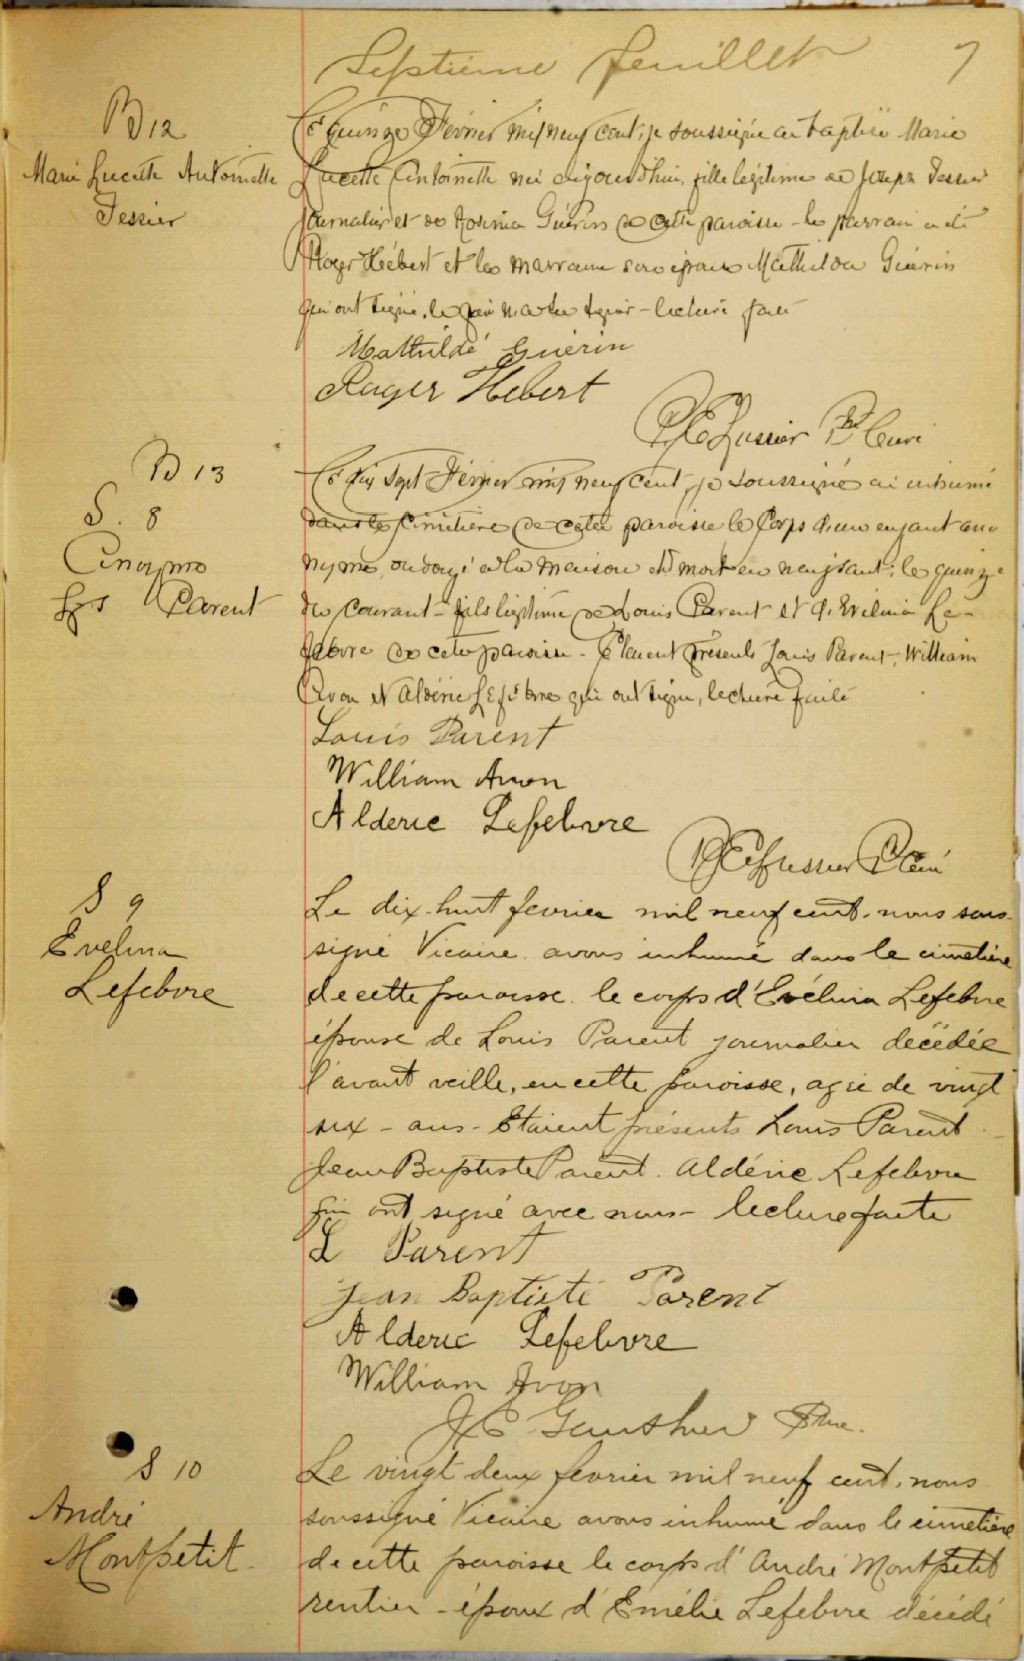 Septième feuillet 7
B 12
Marie Lucette Antoinette
Tessier
Ce quinze Février mil neuf cent, je soussigné ai baptisé Marie
Lucette Antoinette née aujourd'hui, fille légitime de Joseph Tessier
journalier et de Rosinia Guérin de cette paroisse - le parrain a été
Roger Hébert et la marraine son épouse Mathilda Guérin
qui ont signé, le père n'a su signer - lecture faite
Mathildé Guérin
Roger Hebert
Lussier Ptre Curé
B 13
S. 8
Anonyme
Parent
Ce dix sept Février mil neuf cent, je soussigné ai inhumé
dans le cimetière de cette paroisse le corps d'un enfant ano
nyme, ondoyé à la maison et mort en naissant, le quinze
du courant - fils légitime de Louis Parent et d'Evelina Le-
febvre de cette paroisse - Etaient présents Louis Parent, William
Avon et Aldéric Lefebvre qui ont signé, lecture faite
Louis Parent
William Avon
Alderic Lefebvre
Lussier Ptre Curé
S 9
Evelina
Lefebvre
Le dix-huit fevrier mil neuf cent, nous sous-
signé Vicaire avons inhumé dans le cimetière
de cette paroisse le corps d'Evélina Lefebvre
épouse de Louis Parent journalier décédée
l'avant veille, en cette paroisse, agée de vingt
six - ans - Etaient présents Louis Parent
Jean Baptiste Parent. Aldéric Lefebvre
qui ont signé avec nous - lecture faite
L Parent
Jean Baptiste Parent
Alderic Lefebvre
William Avon
J E Gauthier Ptre.
S 10
André
Montpetit
Le vingt deux fevrier mil neuf cent, nous
soussigné Vicaire avons inhumé dans le cimetière
de cette paroisse le corps d'André Montpetit
rentier - époux d'Emélie Lefebvre décédé